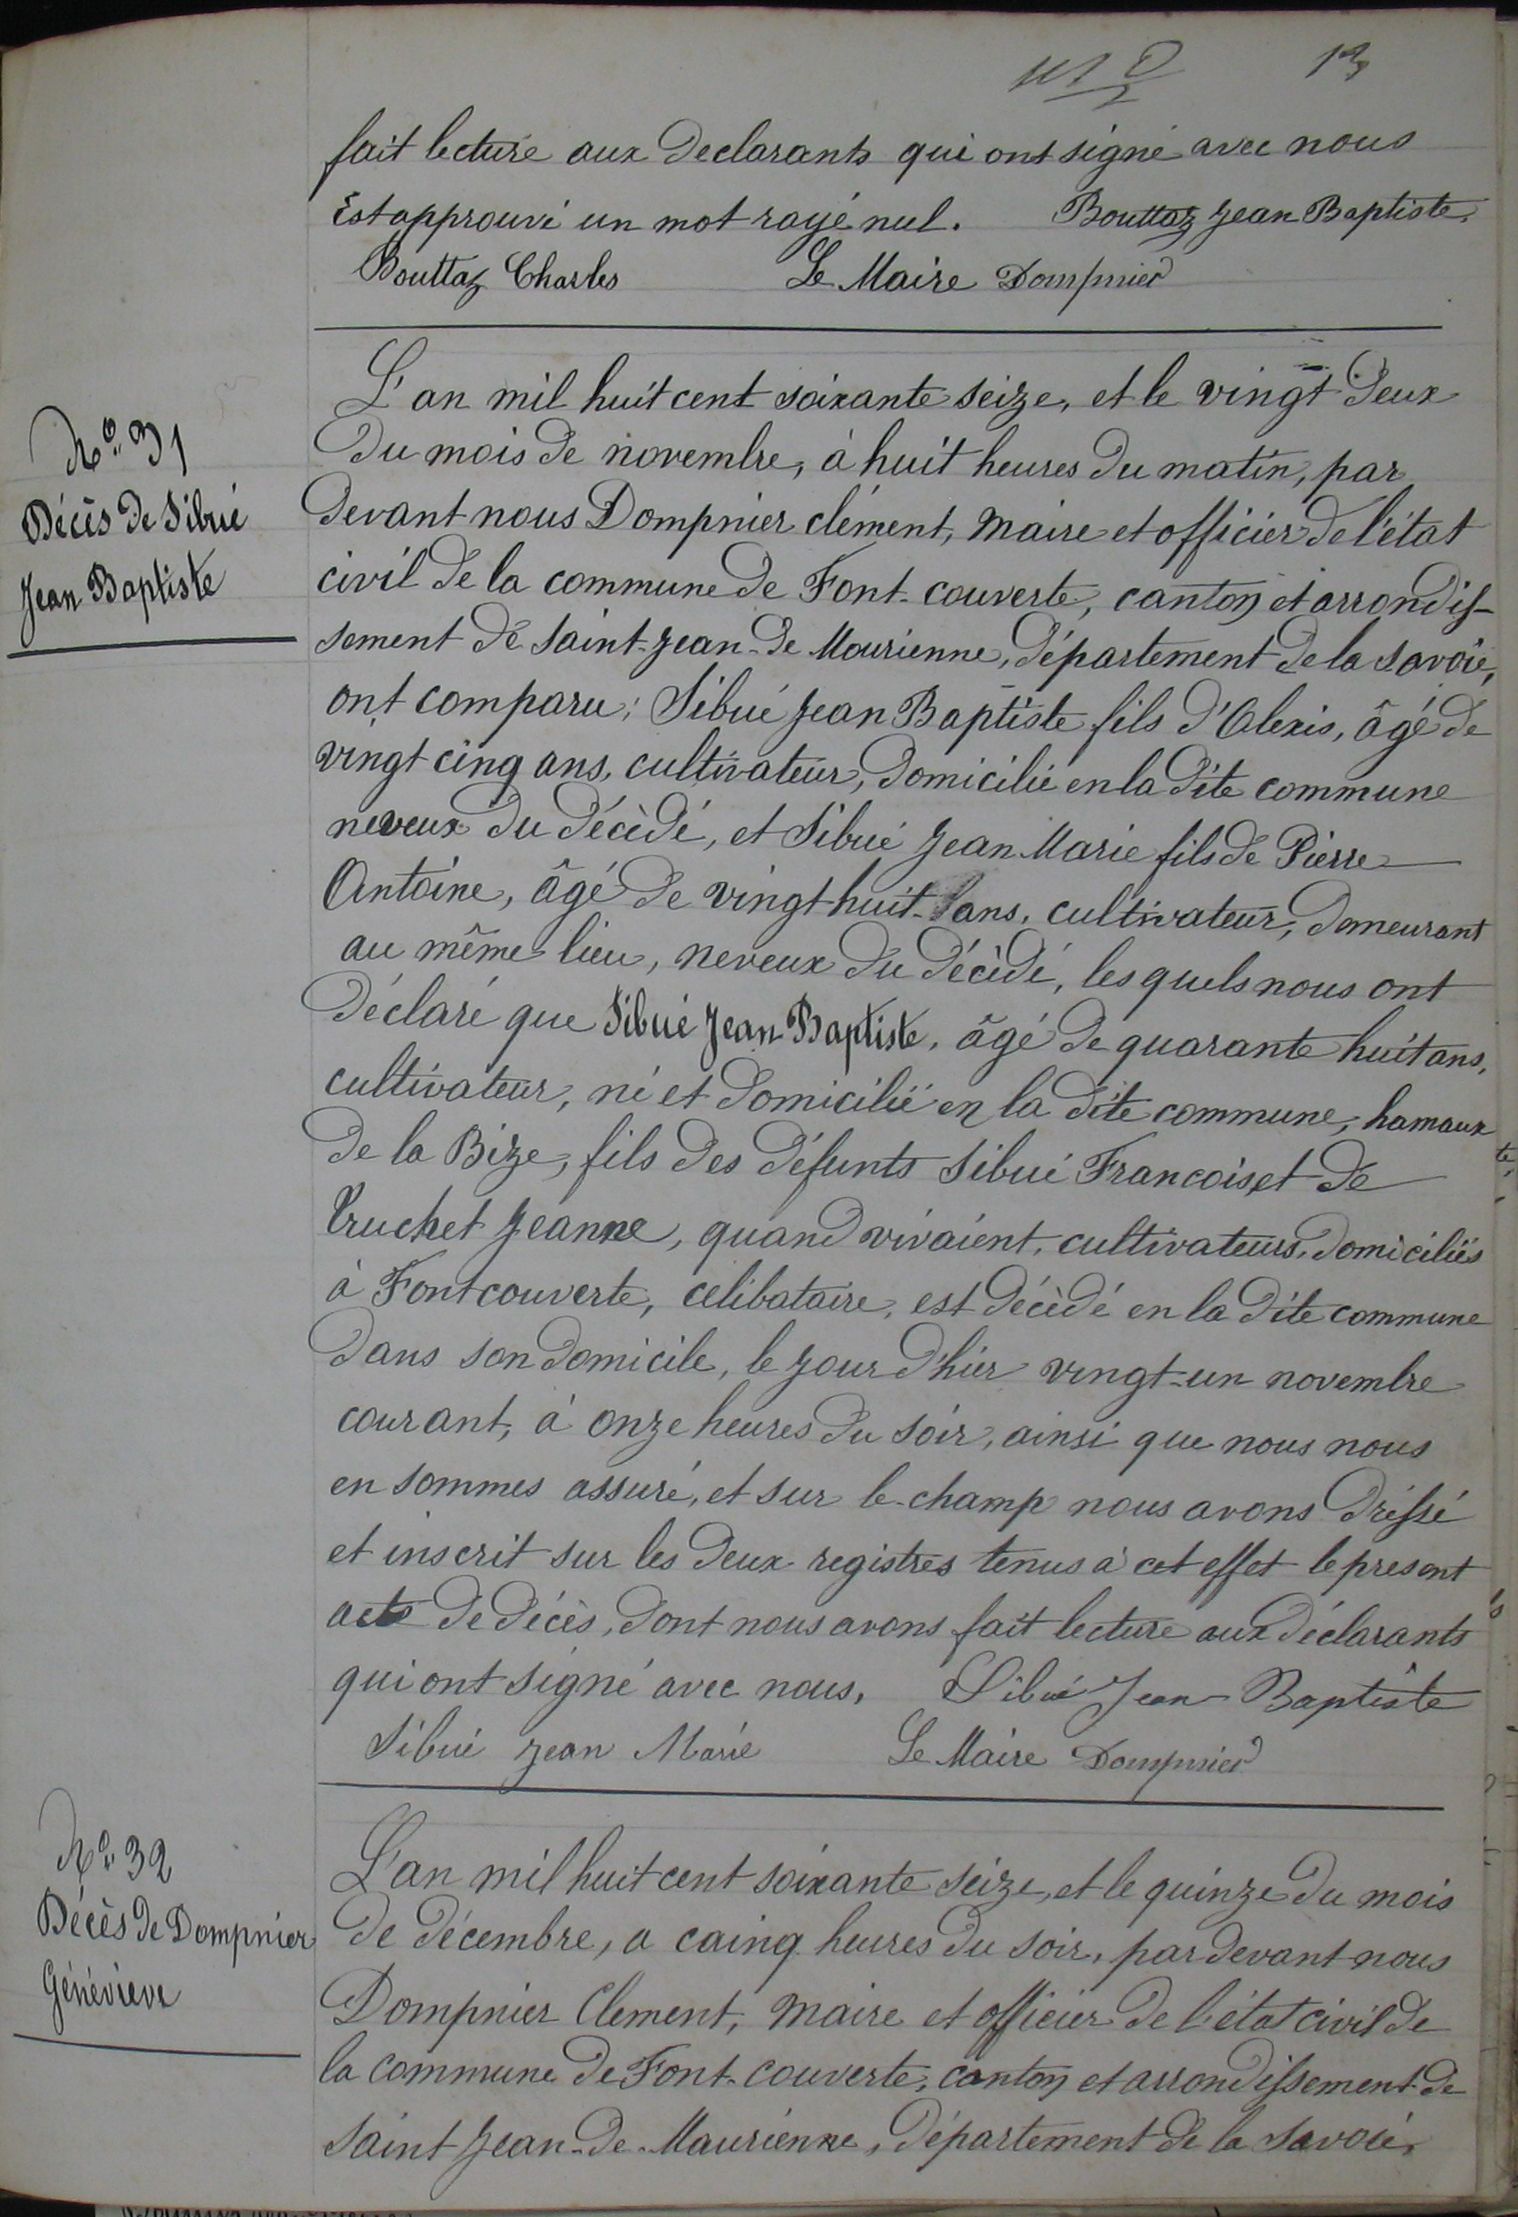 13
fait lecture aux declarants qui ont signé avec nous
Est approuvé un mot rayé nul. Bouttaz Jean Baptiste
Bouttaz Charles Le Maire Dompnier
N° 31
Décès de Sibué
Jean Baptiste
L'an mil huit cent soixante seize, et le vingt deux
du mois de novembre, à huit heures du matin, par
devant nous Dompnier clément, Maire et officier de l'état
civil de la commune de Font-couverte, canton et arrondis-
sement de Saint-Jean-de Maurienne, département de la Savoie,
ont comparu: Sibué Jean Baptiste fils d'Alexis, âgé de
vingt cinq ans, cultivateur, domicilié en la dite commune
neveux du décèdé, et Sibué Jean Marie fils de Pierre
Antoine, âgé de vingt-huit ans, cultivateur, demeurant
au même lieu, neveux du décèdé, les quels nous ont
déclaré que Sibué Jean Baptiste, âgé de quarante huit ans,
cultivateur, né et domicilié en la dite commune, hamaux
de la Bize, fils des défunts Sibué Francois et de
Truchet Jeanne, quand vivaient, cultivateurs, domiciliés
à Fontcouverte, celibataire, est décèdé en la dite commune
dans son domicile, le jour d'hier vingt-un novembre
courant, à onze heures du soir, ainsi que nous nous
en sommes assuré, et sur le-champ nous avons dressé
et inscrit sur les deux registres tenus à cet effet le present
acte de décès, dont nous avons fait lecture aux déclarants
qui ont signé avec nous. Sibué Jean Baptiste
Sibué Jean Marie Le Maire Dompnier
N° 32
Décès de Dompnier
Généviève
L'an mil huit cent soixante seize, et le quinze du mois
de décembre, a cainq heures du soir, par devant nous
Dompnier Clement, Maire et officier de l'état civil de
la commune de Font-couverte, canton et arrondissement de
Saint Jean-de-Maurienne, département de la Savoie,